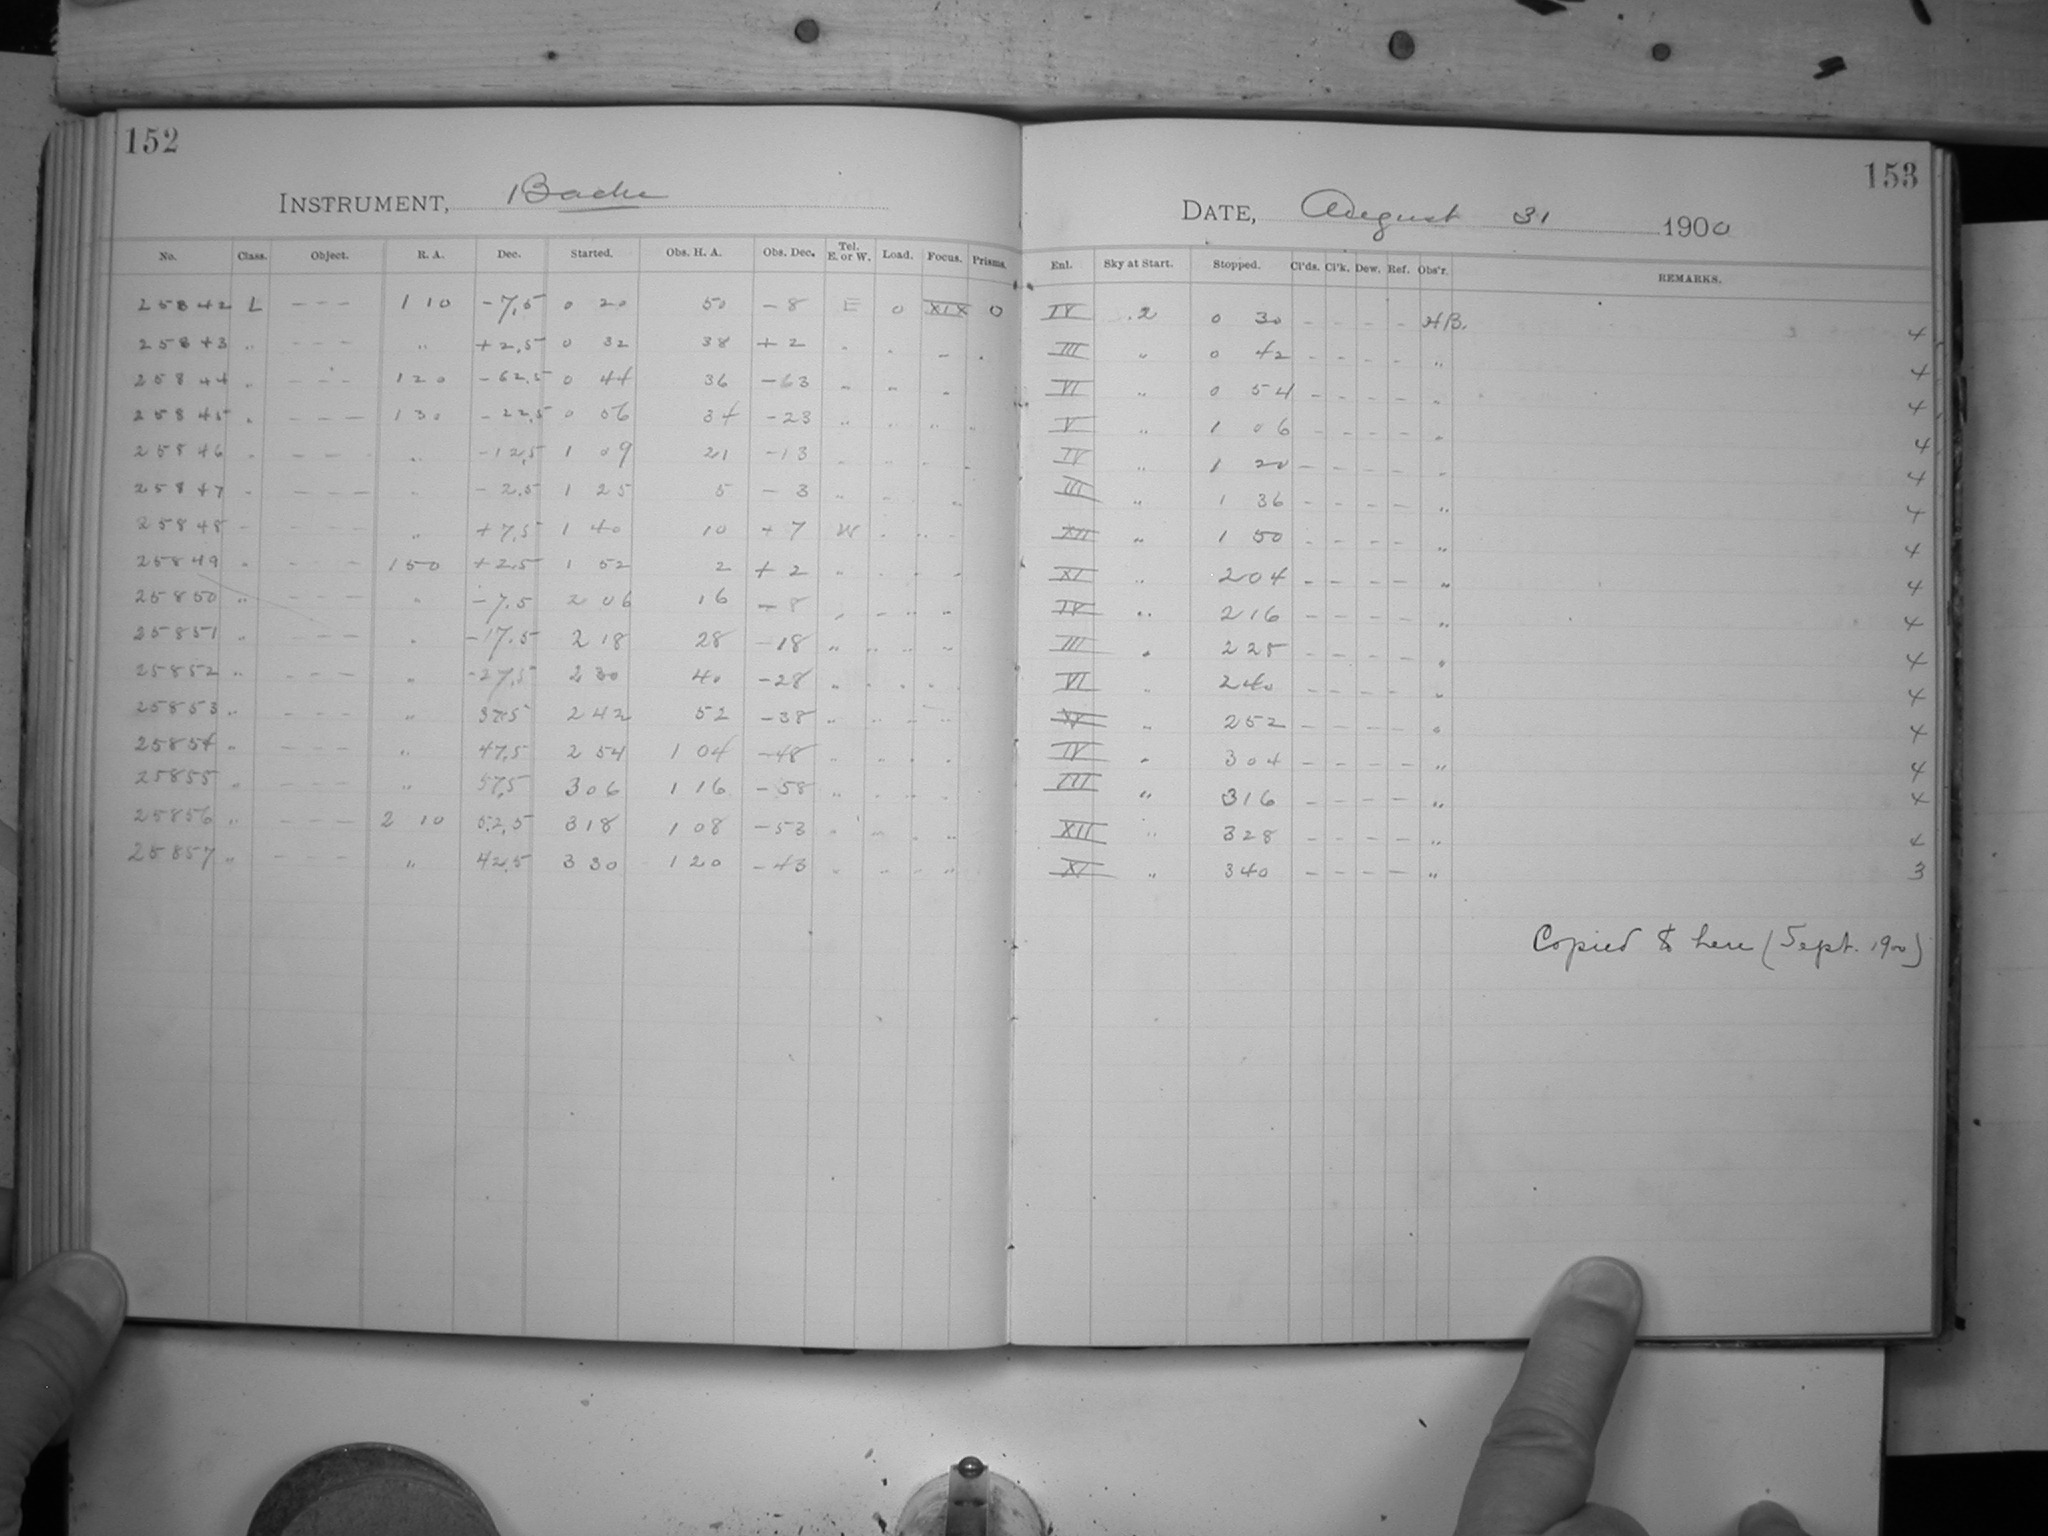 152
INSTRUMENT, Bache
No. Class. Object. R. A. Dec. Started. Obs. H. A. Obs. Dec. Tel. E. or W. Load. Focus. Prisms.
25842 L --- 1 10 -7.5 0 20 50 -8 E 0 XIX 0
25843 " --- " +2.5 0 32 38 +2 " " " "
25844 " --- 1 20 -62.5 0 44 36 -63 " " "
25845 " --- 1 30 -22.5 0 56 34 -23 " " " "
25846 " --- " -12.5 1 09 21 -13 " " " "
25847 " --- " -2.5 1 25 5 -3 " " "
25848 " --- " +7.5 1 40 10 +7 W " " "
25849 " --- 1 50 +2.5 1 52 2 +2 " " " "
25850 " --- " -7.5 2 06 16 -8 " " " "
25851 " --- " -17.5 2 18 28 -18 " " " "
25852 " --- " -27.5 2 30 40 -28 " " " "
25853 " --- " 37.5 2 42 52 -38 " " " "
25854 " --- " 47.5 2 54 1 04 -48 " " " "
25855 " --- " 57.5 3 06 1 16 -58 " " " "
25856 " --- 2 10 52.5 3 18 1 08 -53 " " " "
25857 " --- " 42.5 3 30 1 20 -43 " " " "
153
DATE, August 31 1900
Enl. Sky at Start. Stopped. Cl'ds. Cl'k. Dew. Ref. Obs'r. REMARKS.
IV .2 0 30 - - - - HB. 4
III " 0 42 - - - - " 4
VI " 0 54 - - - - " 4
V " 1 06 - - - - " 4
IV " 1 20 - - - - " 4
III " 1 36 - - - - " 4
XII " 1 50 - - - - " 4
XI " 2 04 - - - - " 4
IV " 2 16 - - - - " 4
III " 2 28 - - - - " 4
VI " 2 40 - - - - " 4
" 2 52 - - - - " 4
IV " 3 04 - - - - " 4
III " 3 16 - - - - " 4
XII " 3 28 - - - - " 4
XI " 3 40 - - - - " 3
Copied to here (Sept. 1900)